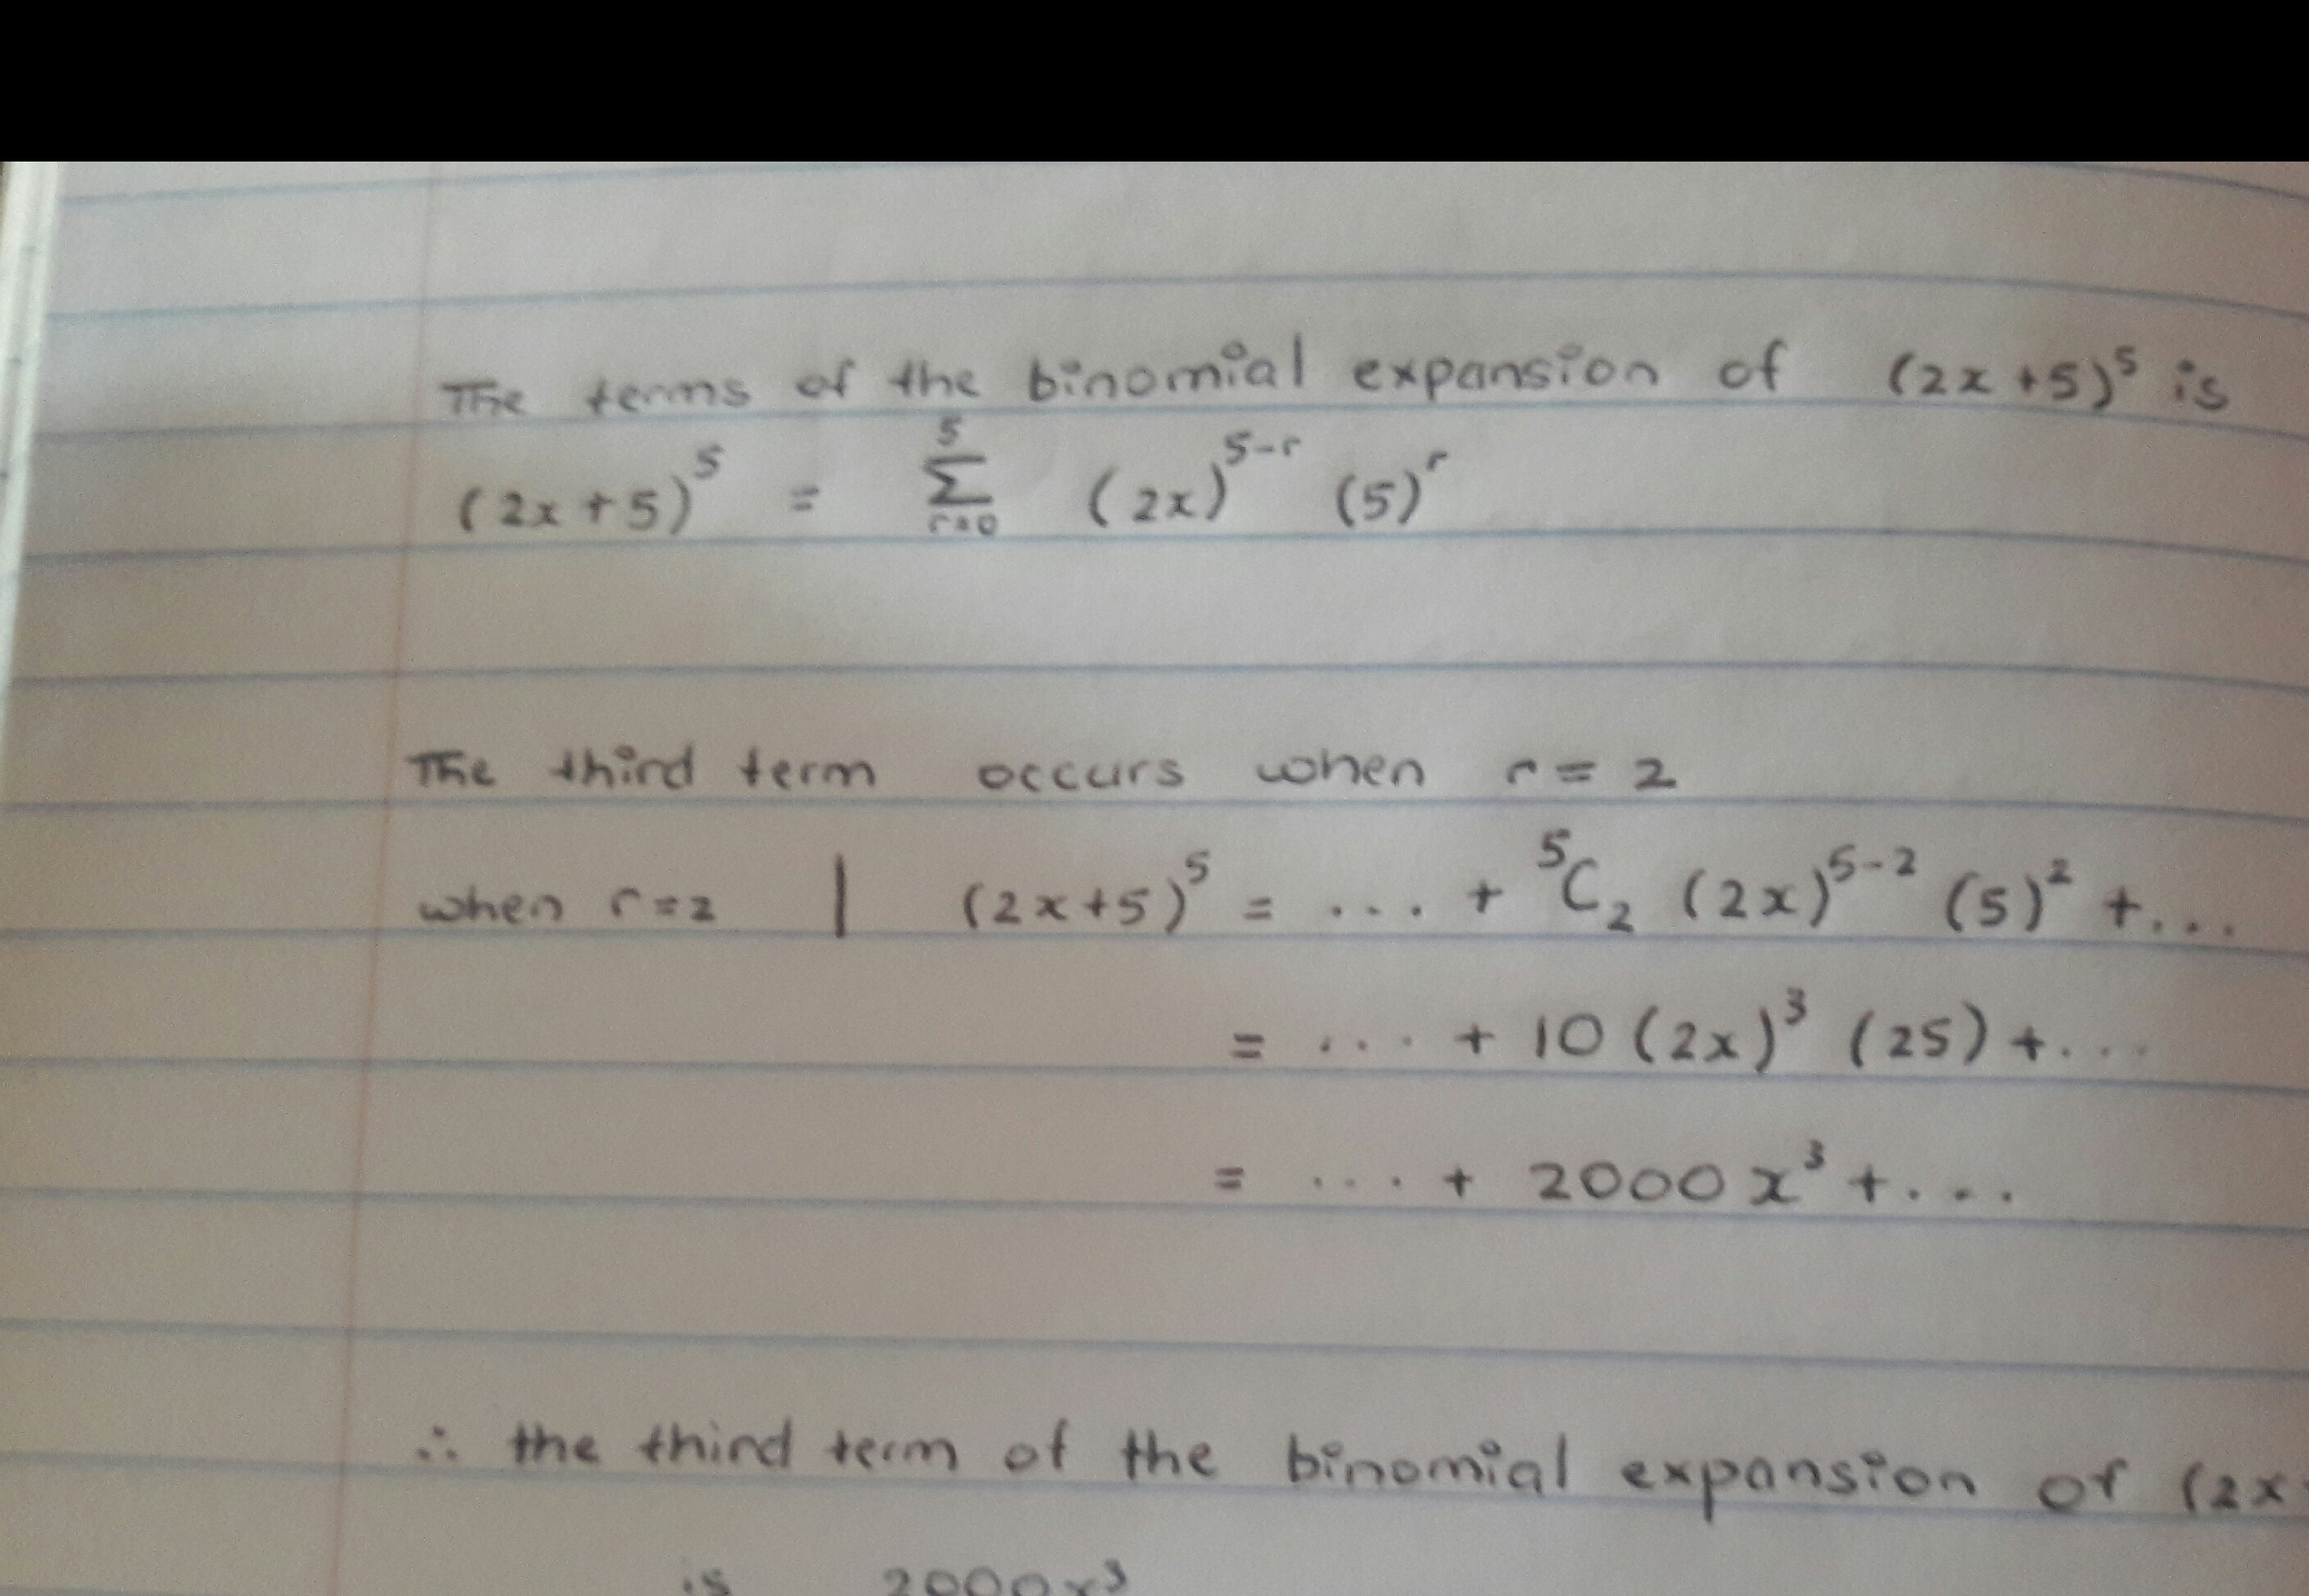 The terms of the binomial expansion of (2x+5)⁵ is
(2x+5)⁵ = ⁵∑ᵣ₌₀ (2x)⁵⁻ʳ (5)ʳ
The third term occurs when r = 2
when r=2 | (2x+5)⁵ = ... + ⁵C₂ (2x)⁵⁻² (5)² + ...
= ... + 10 (2x)³ (25) + ...
= ... + 2000 x³ + ...
∴ the third term of the binomial expansion of (2x
is 2000x³